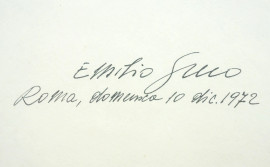 Emilio Greco
Roma, domenica 10 dic. 1972